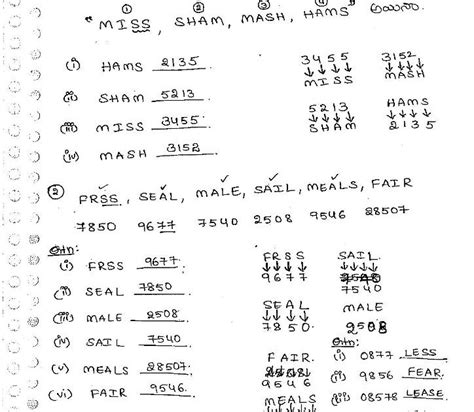 ① ② ③ ④
"MISS, SHAM, MASH, HAMS"
(i) HAMS 2135
3455 3152
↓↓↓↓ ↓↓↓↓
MISS MASH
(ii) SHAM 5213.
5213 HAMS
↓↓↓↓ ↓↓↓↓
SHAM 2135
(iii) MISS 3455.
(iv) MASH 3152
② FRSS, SEAL, MALE, SAIL, MEALS, FAIR
7850 9677 7540 2508 9546 28507
(i) FRSS 9677.
FRSS SAIL.
↓↓↓↓ ↓↓↓↓
9677
7540
(ii) SEAL 7850
SEAL MALE
↓↓↓↓
7850. 2508
(iii) MALE 2508.
(iv) SAIL 7540
FAIR. (i) 0877 LESS
(v) MEALS 28507.
9546 (ii) 9856 FEAR.
(vi) FAIR 9546.
MEALS (iii) 08578 LEASE.